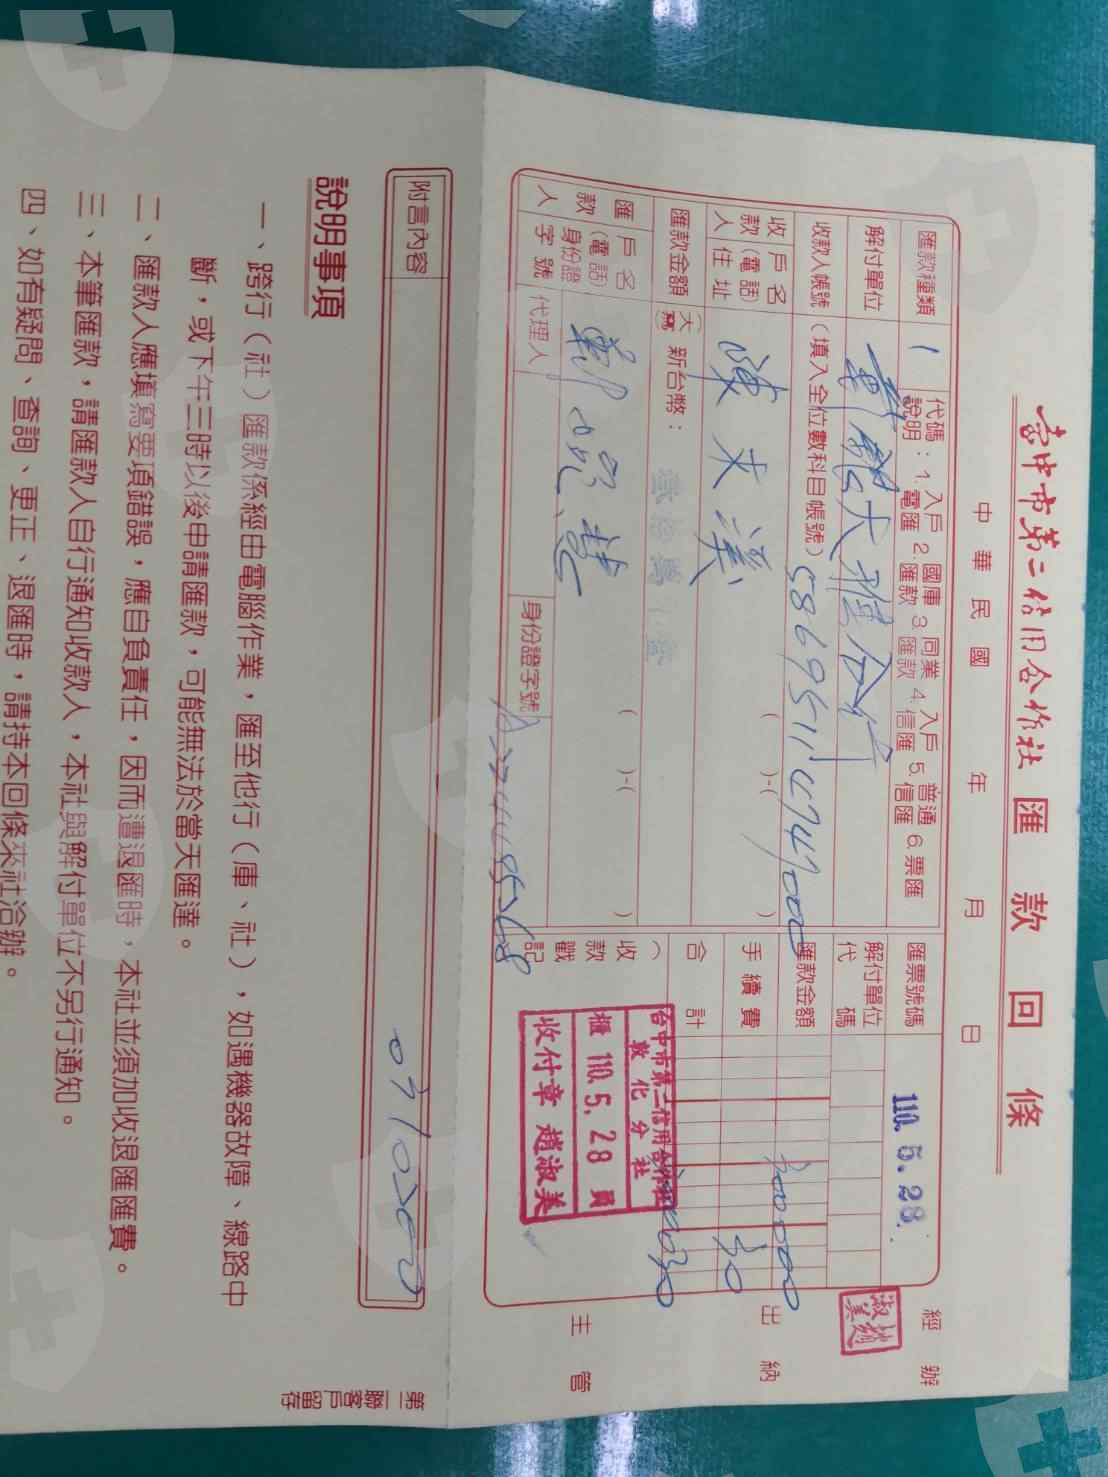 台中市第二信用合作社 匯款回條
中華民國 年 月 日
匯款種類 1 代碼說明：1.入戶電匯 2.國庫匯款 3.同業匯款 4.入戶信匯 5.普通信匯 6.票匯
匯票號碼 110. 5. 28.
解付單位 大雅分行
解付單位代碼
收款人帳號（填入全位數科目帳號）
匯款金額
收款人 戶名（電話）住址 陳 ( )-( )
手續費 30
匯款金額（大寫）新台幣：
合計
匯款人 戶名（電話）身份證字號 鄭 慧 ( )-( )
代理人 身份證字號
（收款戳記
台中市第二信用合作社
敦化分社
櫃 110. 5. 28 員
收付章 趙淑美
經辦
趙淑美
出納
主管
附言內容
說明事項
一、跨行（社）匯款係經由電腦作業，匯至他行（庫、社），如遇機器故障、線路中
斷，或下午三時以後申請匯款，可能無法於當天匯達。
二、匯款人應填寫要項錯誤，應自負責任，因而遭退匯時，本社並須加收退匯匯費。
三、本筆匯款，請匯款人自行通知收款人，本社與解付單位不另行通知。
四、如有疑問、查詢、更正、退匯時，請持本回條來社洽辦。
第二聯客戶留存